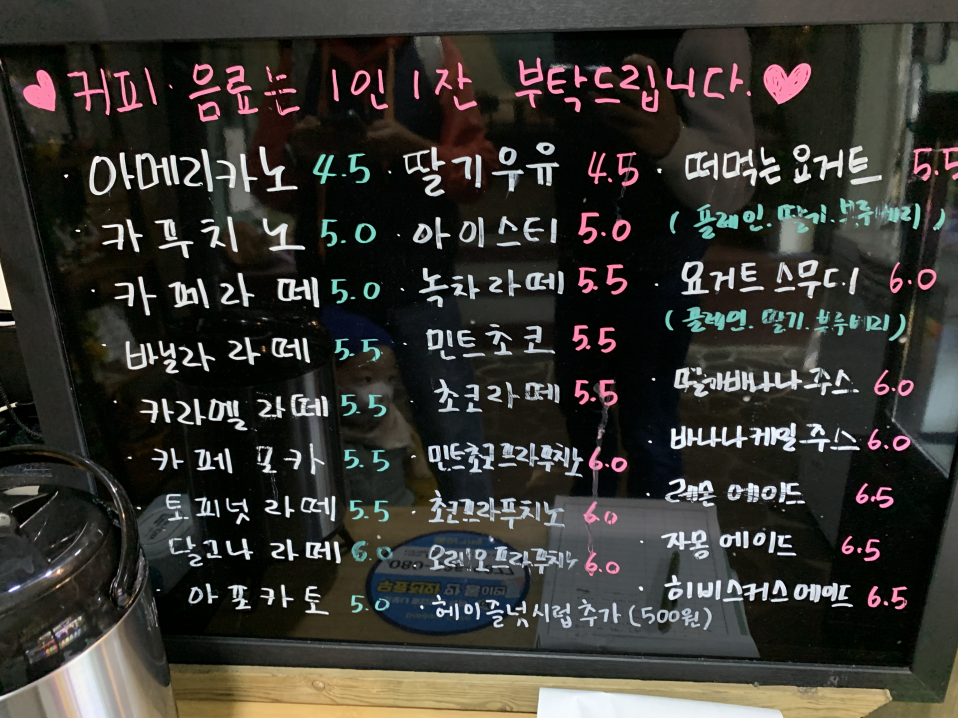 커피·음료는 1인 1잔 부탁드립니다.
· 아메리카노 4.5
· 카푸치노 5.0
· 카페라떼 5.0
· 바닐라 라떼 5.5
· 카라멜 라떼 5.5
· 카페 모카 5.5
· 토피넛 라떼 5.5
달고나 라떼 6.0
· 아포카토 5.0
· 딸기우유 4.5
· 아이스티 5.0
· 녹차라떼 5.5
· 민트초코 5.5
· 초코라떼 5.5
· 민트초코프라푸치노 6.0
· 초코프라푸치노 6.0
· 오레오프라푸치노 6.0
· 헤이즐넛시럽추가 (500원)
· 떠먹는요거트 5.5
( 플레인. 딸기. 블루베리 )
· 요거트 스무디 6.0
( 플레인. 딸기. 블루베리 )
· 딸기바나나주스 6.0
· 바나나케일주스 6.0
· 레몬에이드 6.5
· 자몽에이드 6.5
· 히비스커스에이드 6.5